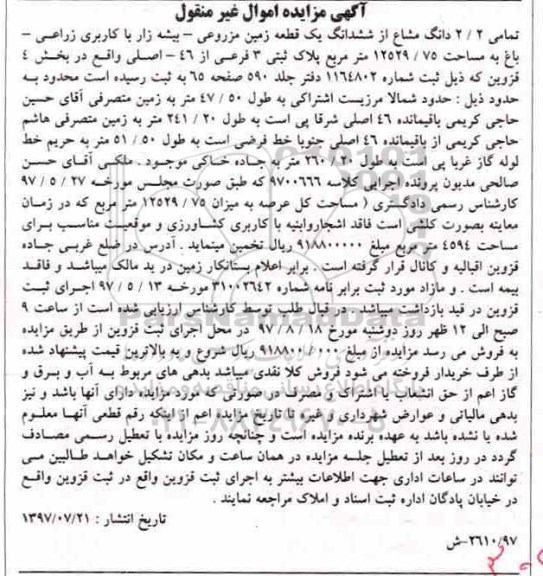 آگهی مزایده اموال غیر منقول
تمامی ۲/۲ دانگ مشاع از ششدانگ یک قطعه زمین مزروعی – بیشه زار با کاربری زراعی –
باغ به مساحت ۱۲۵۲۹/۷۵ متر مربع پلاک ثبتی ۳ فرعی از ۴۶ – اصلی واقع در بخش ۴
قزوین که ذیل ثبت شماره ۱۱۶۴۸۰۲ دفتر جلد ۵۹۰ صفحه ۶۵ به ثبت رسیده است محدود به
حدود ذیل : حدود شمالا مرزیست اشتراکی به طول ۴۷/۵۰ متر به زمین متصرفی آقای حسین
حاجی کریمی باقیمانده ۴۶ اصلی شرقا پی است به طول ۲۴۱/۲۰ متر به زمین متصرفی هاشم
حاجی کریمی از باقیمانده ۴۶ اصلی جنوبا خط فرضی است به طول ۵۱/۵۰ متر به حریم خط
لوله گاز غربا پی است به طول ۲۶۰/۲۰ متر به جاده خاکی موجود . ملکی آقای حسن
صالحی مدیون پرونده اجرایی کلاسه ۹۷۰۰۶۶۶ که طبق صورت مجلس مورخه ۹۷/۵/۲۷
کارشناس رسمی دادگستری ( مساحت کل عرصه به میزان ۱۲۵۲۹/۷۵ متر مربع که در زمان
معاینه بصورت کلشی است فاقد اشجاروابنیه با کاربری کشاورزی و موقعیت مناسب برای
مساحت ۴۵۹۴ متر مربع مبلغ ۹۱۸۸۰۰۰۰۰ ریال تخمین مینماید . آدرس در ضلع غربی جاده
قزوین اقبالیه و کانال قرار گرفته است . برابر اعلام بستانکار زمین در ید مالک میباشد و فاقد
بیمه است . و مازاد مورد ثبت برابر نامه شماره ۳۱۰۰۲۶۴۲ مورخه ۹۷/۵/۱۳ اجرای ثبت
قزوین در قید بازداشت میباشد . در قبال طلب توسط کارشناس ارزیابی شده است از ساعت ۹
صبح الی ۱۲ ظهر روز دوشنبه مورخ ۹۷/۸/۱۸ در محل اجرای ثبت قزوین از طریق مزایده
به فروش می رسد مزایده از مبلغ ۹۱۸۸۰۰/۰۰۰ ریال شروع و به بالاترین قیمت پیشنهاد شده
از طرف خریدار فروخته می شود فروش کلا نقدی میباشد بدهی های مربوط به آب و برق و
گاز اعم از حق انشعاب یا اشتراک و مصرف در صورتی که مورد مزایده دارای آنها باشد و نیز
بدهی مالیاتی و عوارض شهرداری و غیره تا تاریخ مزایده اعم از اینکه رقم قطعی آنها معلوم
شده یا نشده باشد به عهده برنده مزایده است و چنانچه روز مزایده با تعطیل رسمی مصادف
گردد در روز بعد از تعطیل جلسه مزایده در همان ساعت و مکان تشکیل خواهد طالبین می
توانند در ساعات اداری جهت اطلاعات بیشتر به اجرای ثبت قزوین واقع در ثبت قزوین واقع
در خیابان پادگان اداره ثبت اسناد و املاک مراجعه نمایند .
تاریخ انتشار : ۱۳۹۷/۰۷/۲۱
۲۶۱۰/۹۷–ش